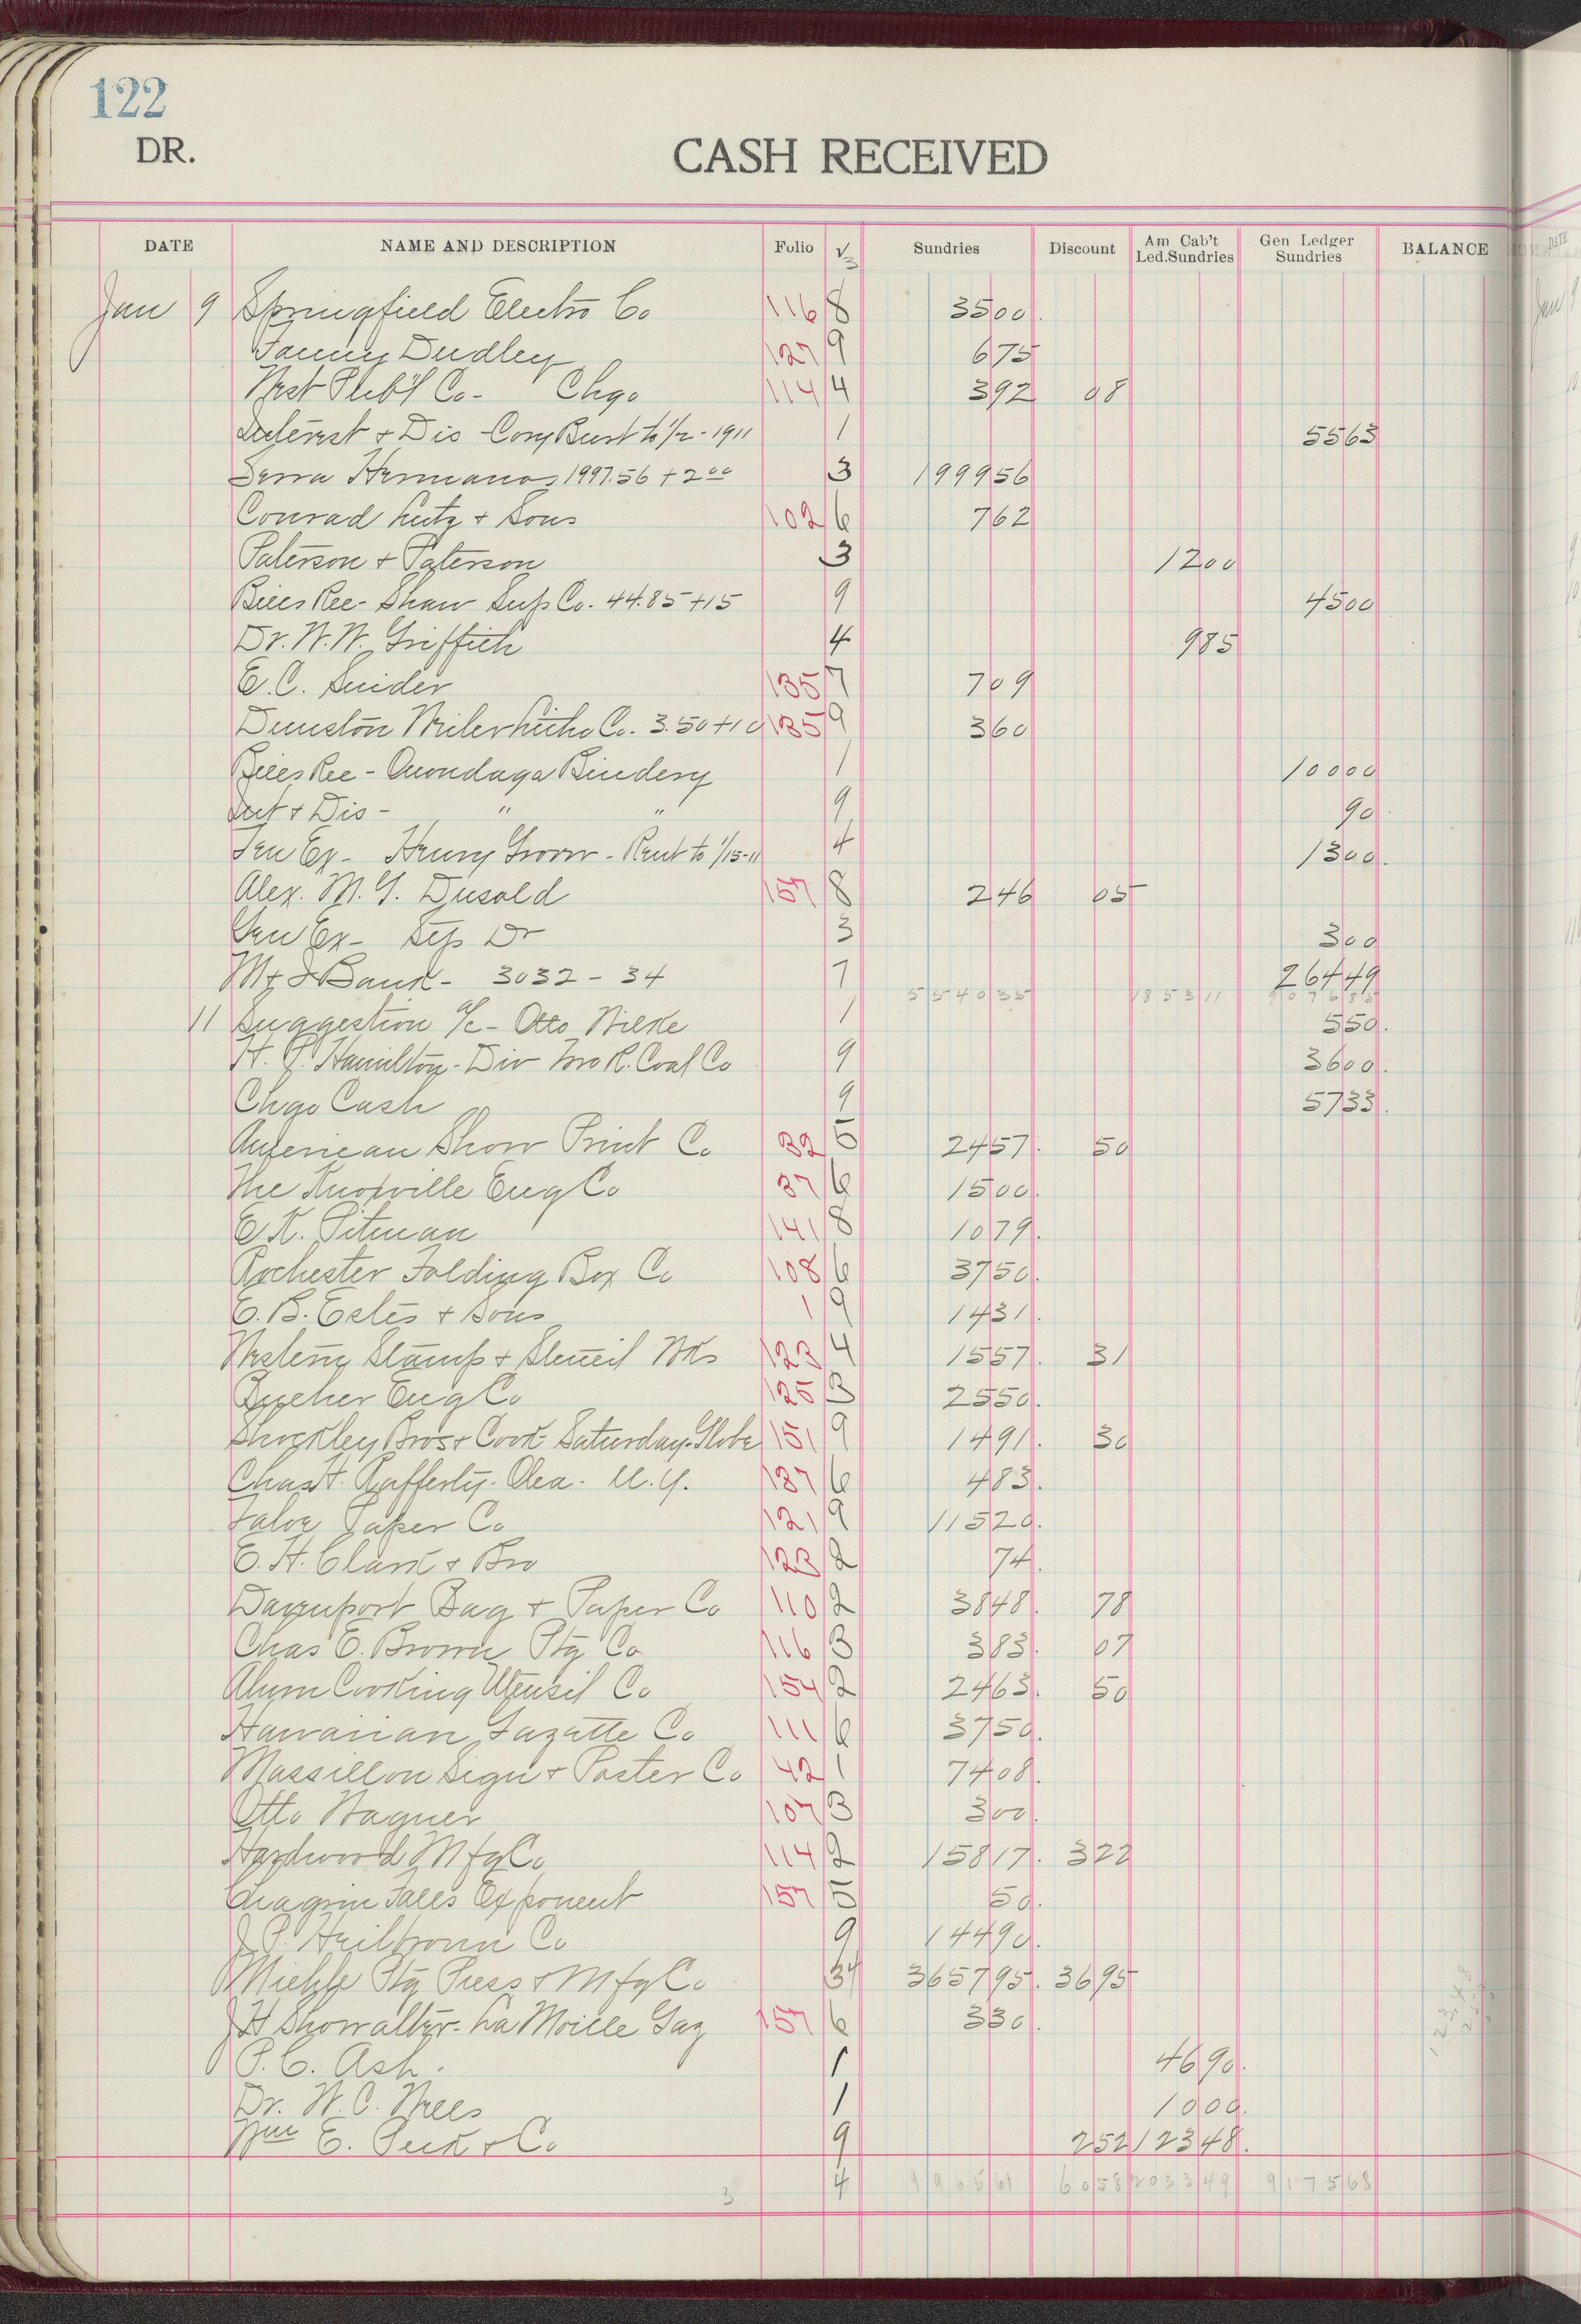 122
DR.
CASH RECEIVED
DATE NAME AND DESCRIPTION Folio √3 Sundries Discount Am Cab't Led.Sundries Gen Ledger Sundries BALANCE
Jan 9 Springfield Electro Co 116 8 3500.
Fanny Dudley 127 9 675
West Publ'g Co - Chgo 114 4 392 08
Interest + Dis - Cory Burt to 1/2 - 1911 1 5563
Serra Hermanos 1997.56 + 2 00 3 199956
Conrad Lutz + Sons 102 6 762
Paterson + Paterson 3 1200
Bills Rec - Shaw Sup Co. 44.85 + 15 9 4500
Dr. W. W. Griffith 4 985
E. C. Snider 135 7 709
Dunston Weiler Litho Co. 3.50 + 10 135 9 360
Bills Rec - Onondaga Bindery 1 10000
Int + Dis - " " 9 90
Gen Ex - Henry - Rent to 1/15-11 4 1300.
Alex. M. G. Dusold 157 8 246 05
Gen Ex - Dr 3 300
M + Bank - 3032 - 34 7 26449
554035 185311 907685
11 Suggestion a/c - Otto Wilke 1 550.
H. Hamilton - Div R. Coal Co 9 3600.
Chgo Cash 9 5733.
American Show Print Co 32 5 2457. 50
The Knoxville Eng Co 37 6 1500.
E K. Pitman 141 8 1079.
Rochester Folding Box Co 108 6 3750.
E. B. Estes + Sons 1 9 1431.
Western Stamp + Stencil Wks 123 4 1557. 31
Bucher Eng Co 125 3 2550.
Shockley Bros + Cook - Saturday Globe 151 9 1491. 30
Chas H. Rafferty - Olea - N.Y. 137 6 483.
Paper Co 121 9 11520.
E. H. Clark + Bro 123 2 74.
Davenport Bag + Paper Co 110 2 3848. 78
Chas E. Brown Ptg Co 116 3 383. 07
Alum Cooking Utensil Co 154 2 2463. 50
Hawaiian Gazatte Co 111 6 3750.
Massillon Sign + Poster Co 42 1 7408.
Otto Wagner 107 3 300.
Hardwood Mfg Co 114 2 15817. 322
Chagrin Falls Exponent 157 5 50.
J. P. Heilbronn Co 9 14490.
Miehle Ptg Press & Mfg Co 34 365795. 3695
J H Showalter - La Moille Gaz 157 6 330.
P. C. Ash. 1 4690.
Dr. W. C. 1 1000.
Wm E. Peck + Co 9 252 12348.
3 4 996561 6058 203349 917568